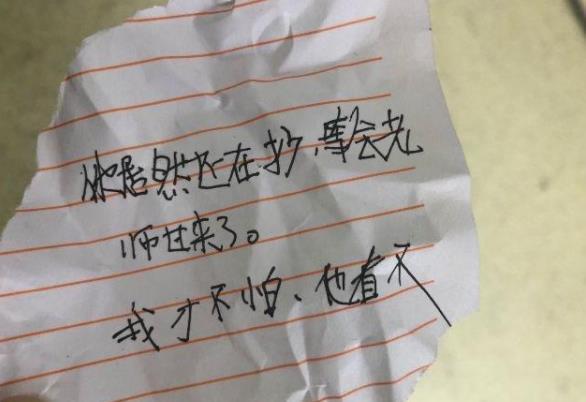 你居然还在抄,等会老
师进来了。
我才不怕、他看不